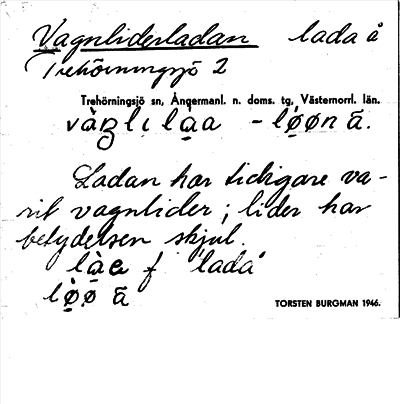 Vagnliderladan lada å
Trehörningsjö 2
Trehörningsjö sn, Ångermanl. n. doms. tg, Västernorrl. län.
Ladan har tidigare va-
rit vagnlider; lider har
betydelsen skjul.
f 'lada'
TORSTEN BURGMAN 1946.